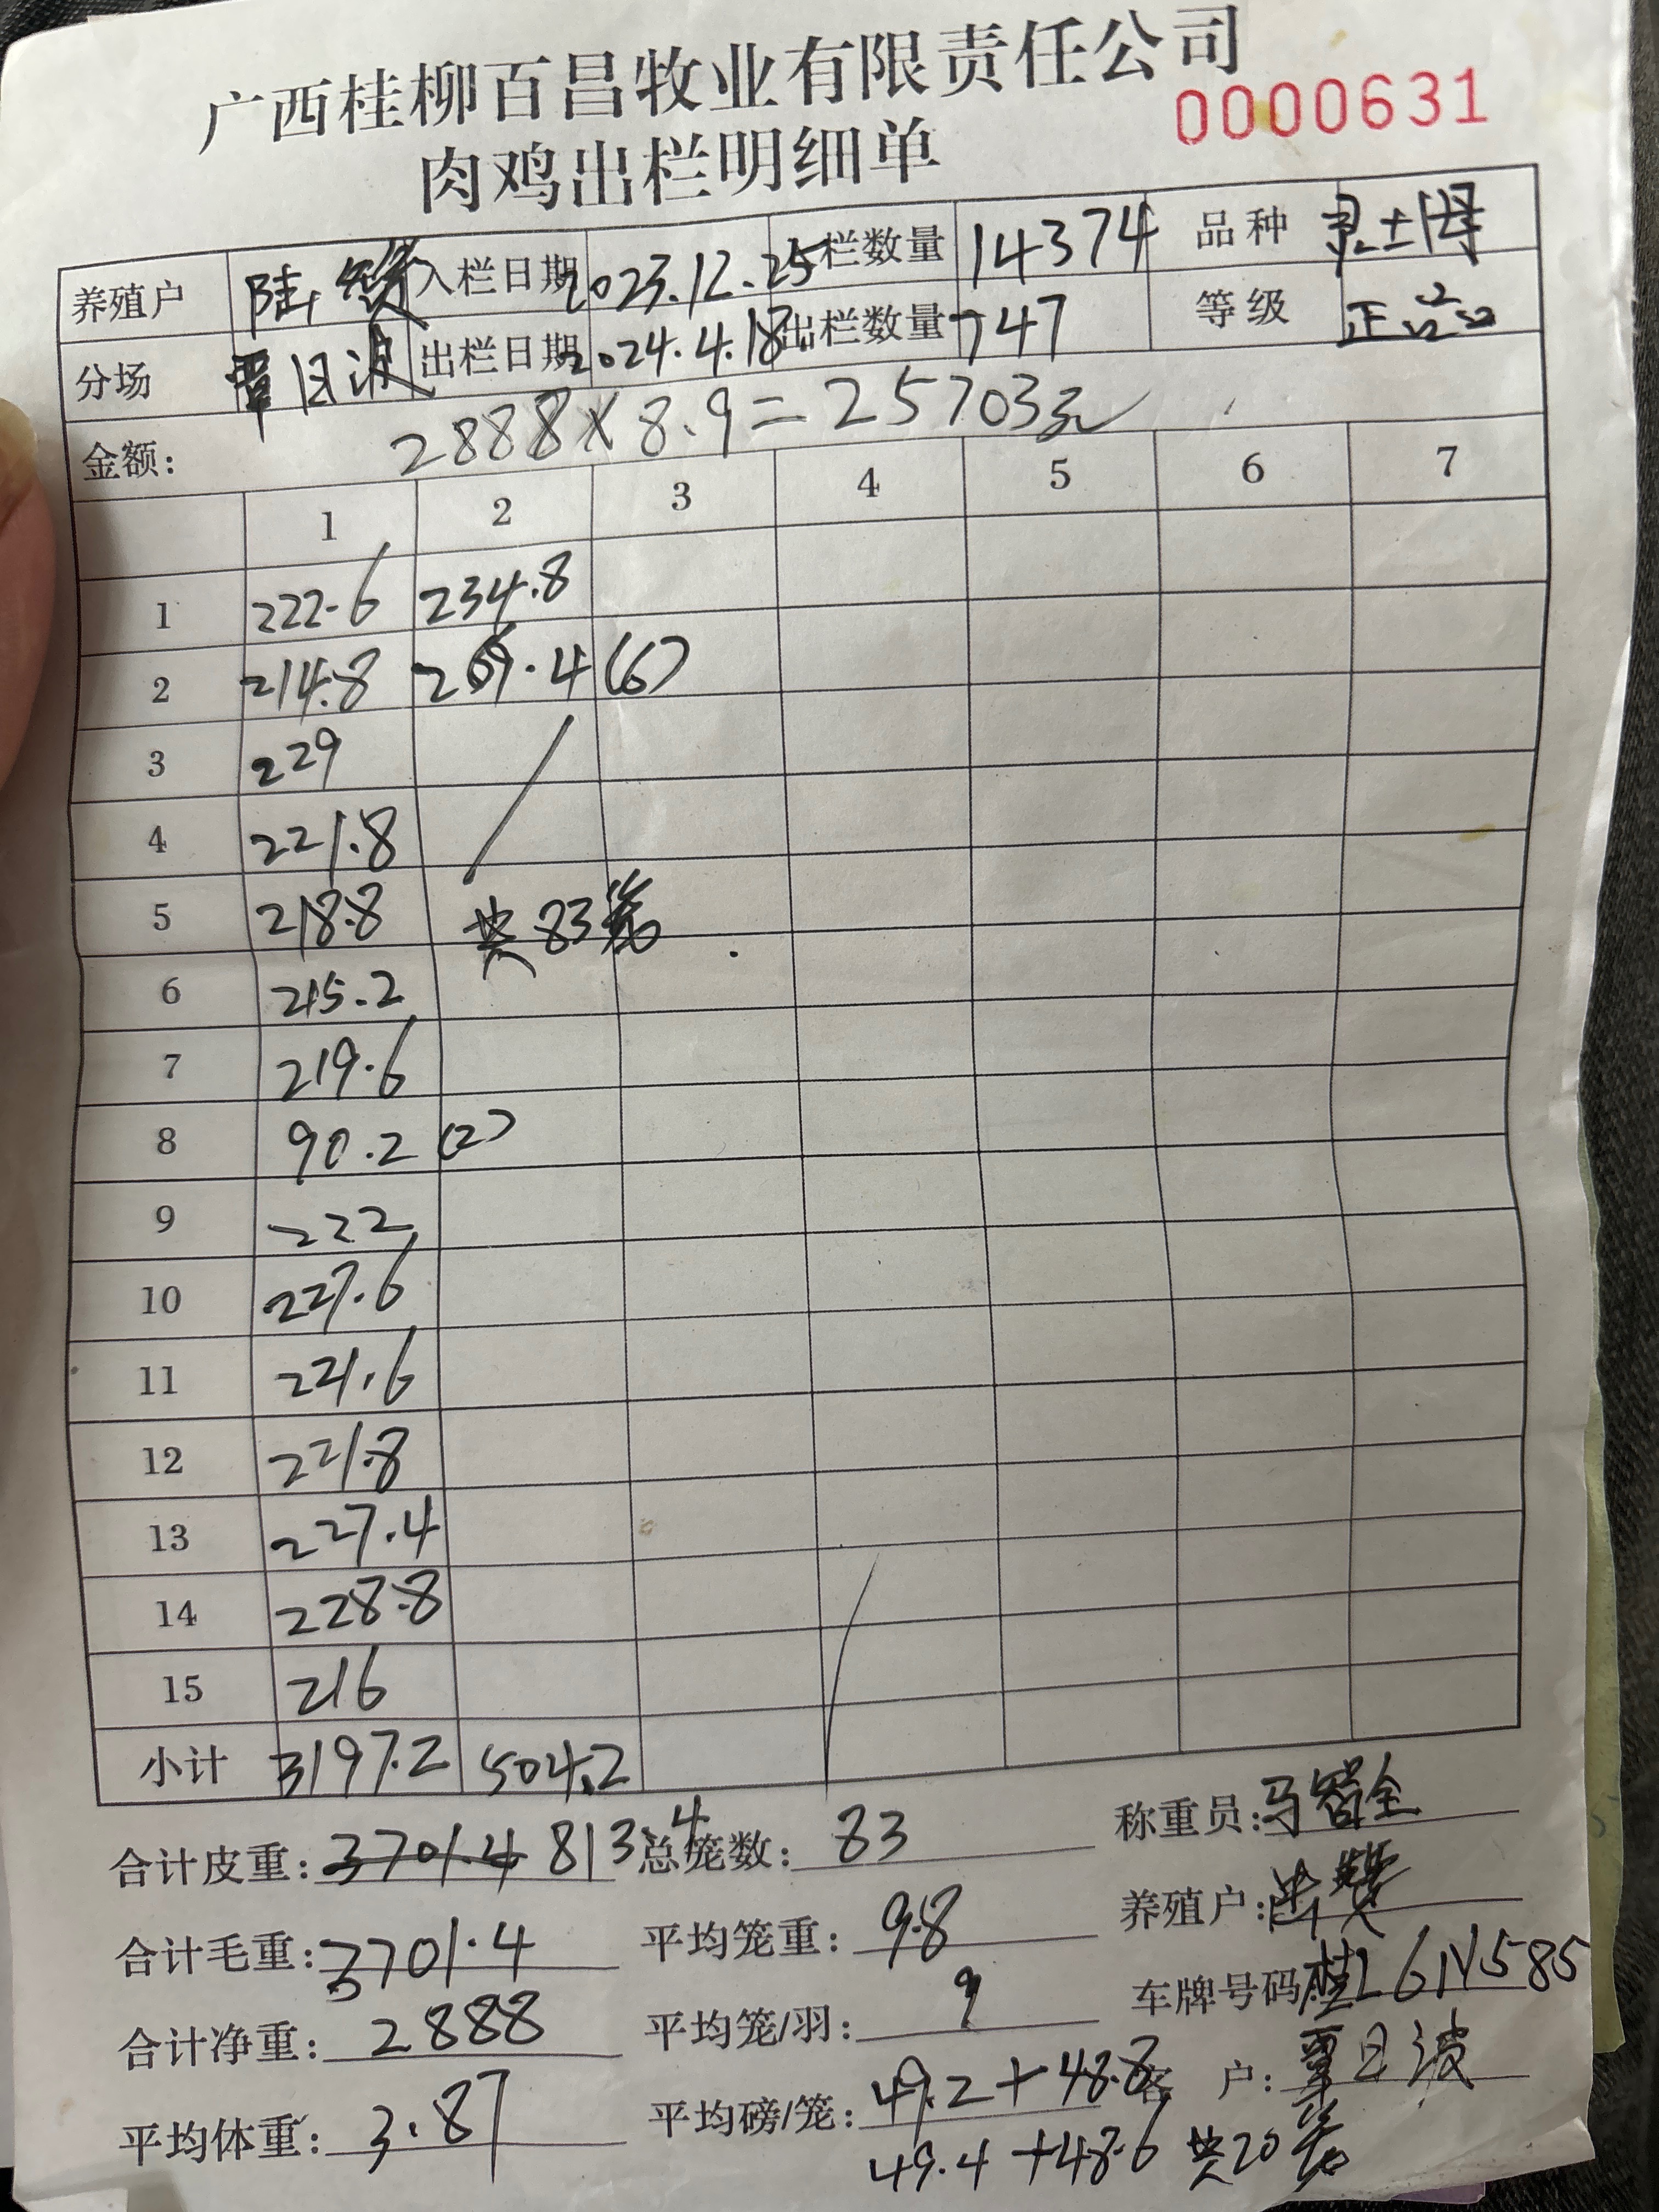 广西桂柳百昌牧业有限责任公司
0000631
肉鸡出栏明细单
养殖户 陆 入栏日期 2023.12.25 栏数量 14374 品种 灵土
分场 覃日波 出栏日期 2024.4.18 出栏数量 747 等级 正品
金额: 2888×8.9=25703元
1 2 3 4 5 6 7
1 222.6 234.8
2 214.8 269.4 (6)
3 229
4 221.8
5 218.8 共83笼
6 215.2
7 219.6
8 90.2 (2)
9 222
10 227.6
11 221.6
12 221.8
13 227.4
14 228.8
15 216
小计 3197.2 504.2
合计皮重: 3701.4 813.4 总笼数: 83 称重员: 马智全
合计毛重: 3701.4 平均笼重: 9.8 养殖户:
合计净重: 2888 平均笼/羽: 9 车牌号码 桂L6N585
平均体重: 3.87 平均磅/笼: 49.2+48.8 客 户: 覃日波
49.4+48.6 共20笼